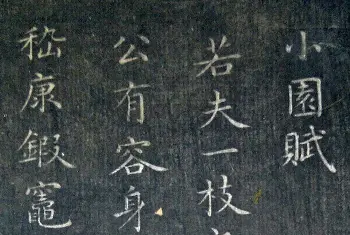 小園賦
若夫一枝
公有容身
嵇康鍛竈